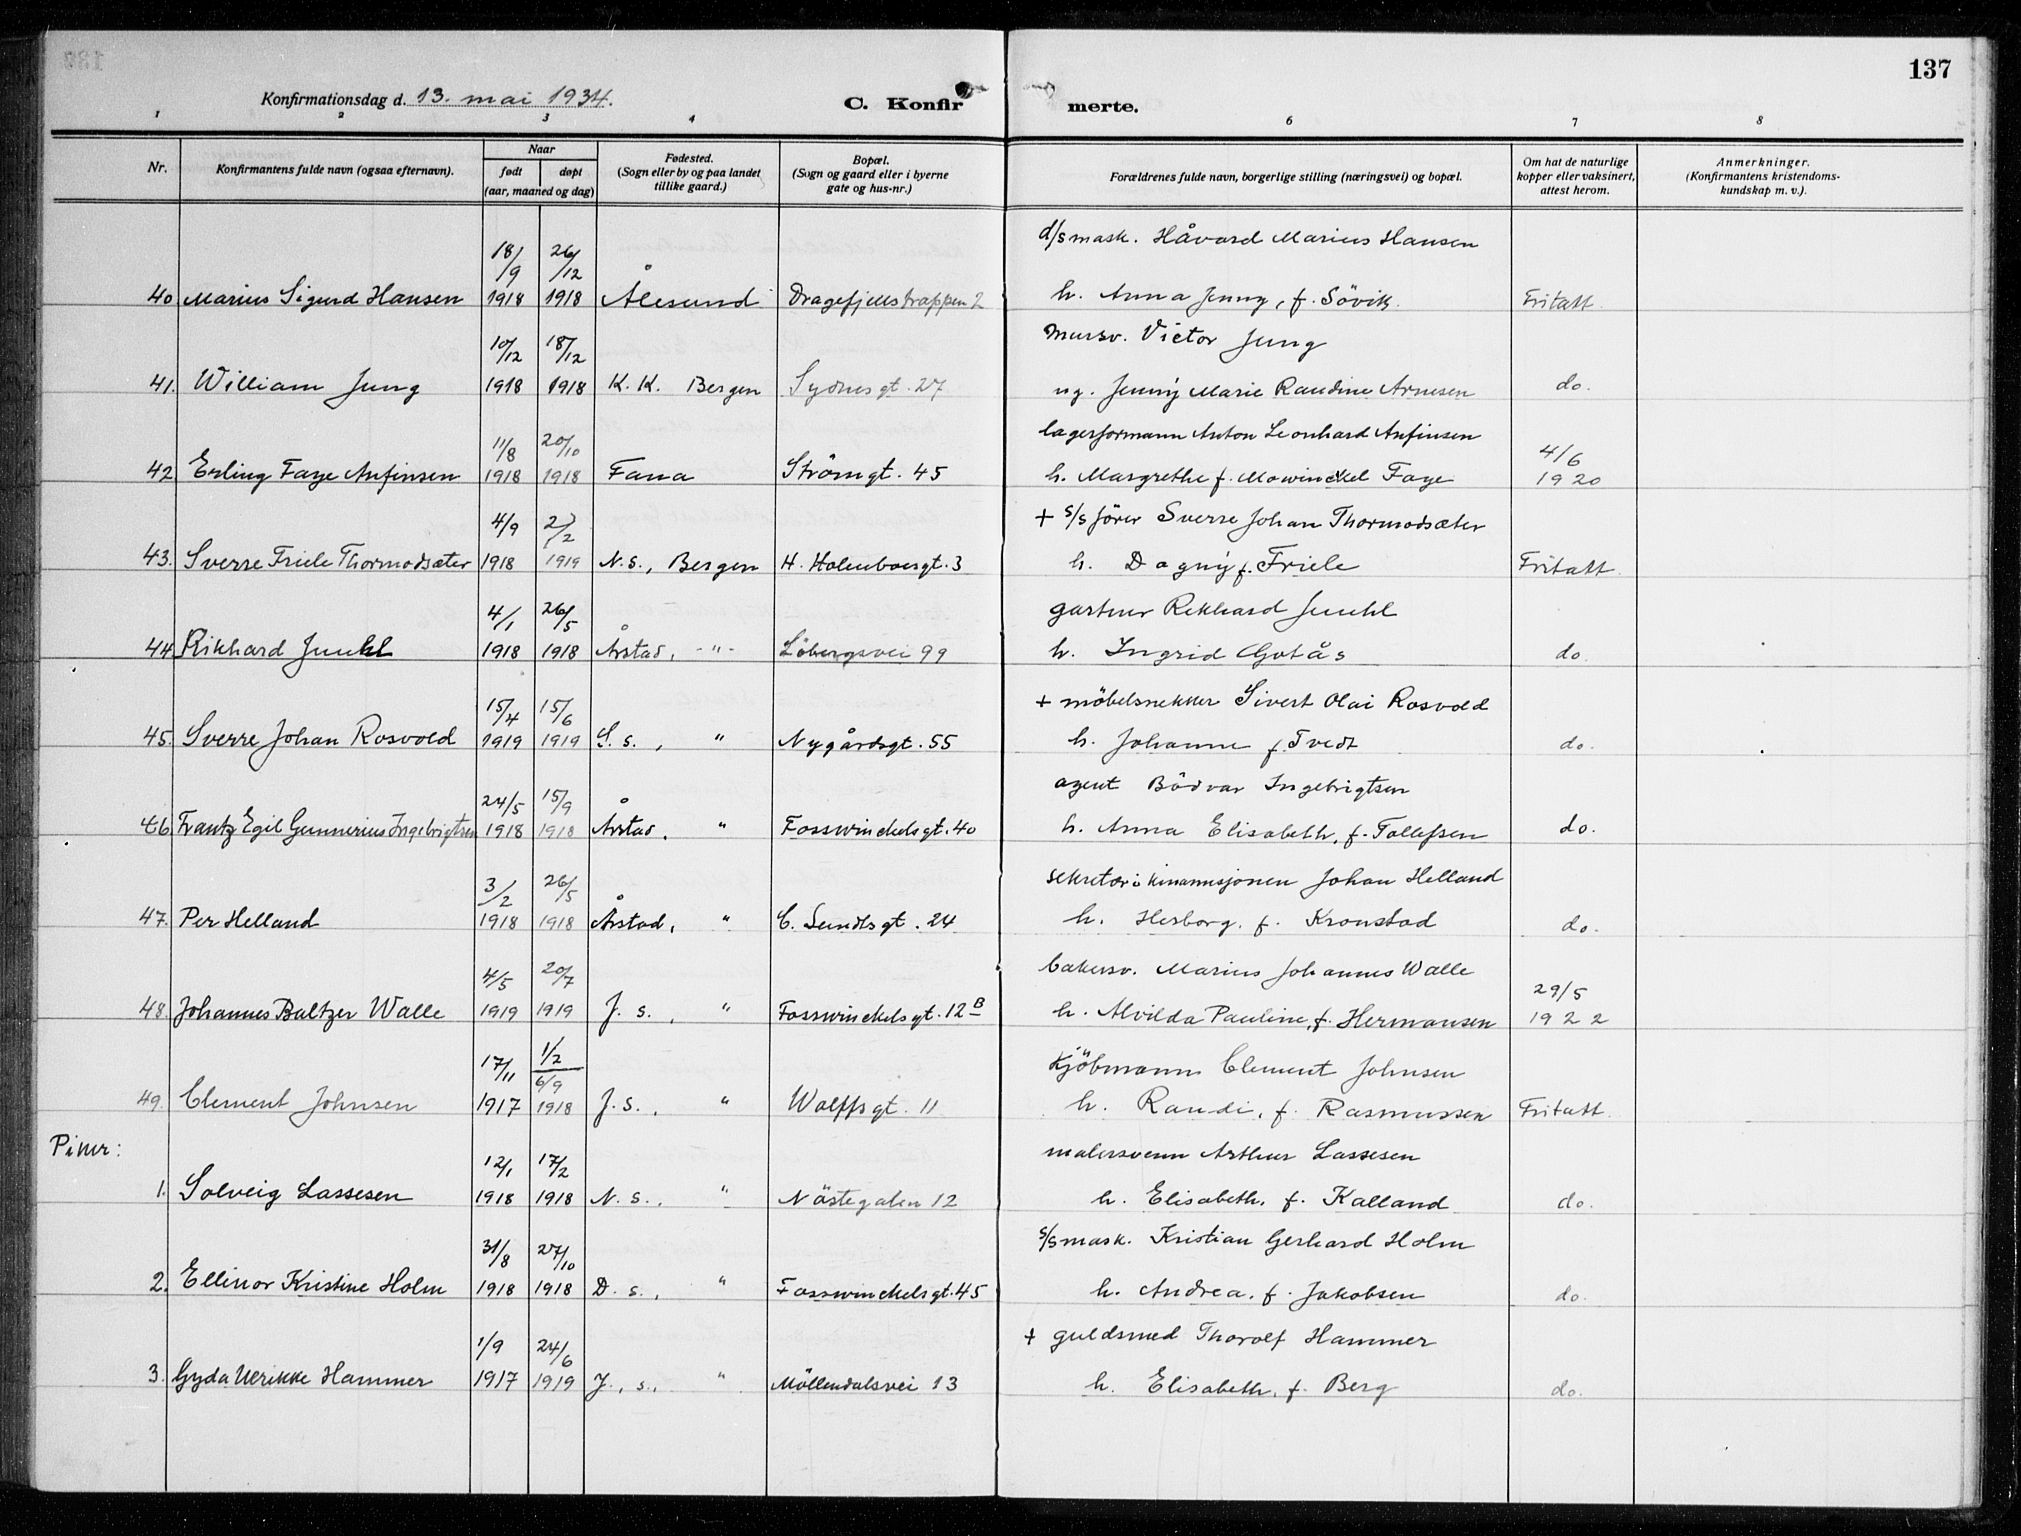 137
Konfirmationsdag d. 13. mai 1934.
C. Konfir merte.
1 2 3 4 6 7 8
Nr.
Konfirmantens fulde navn (ogsaa efternavn).
Naar
født døpt
(aar, maaned og dag)
Fødested.
(Sogn eller by og paa landet
tillike gaard.)
Bopæl.
(Sogn og gaard eller i byerne
gate og hus-nr.)
Forældrenes fulde navn, borgerlige stilling (næringsvei) og bopæl.
Om hat de naturlige
kopper eller vaksinert,
attest herom.
Anmerkninger.
(Konfirmantens kristendoms-
kundskap m. v.).
18/9 26/12 d/s mask. Håvard Marius Hansen
40 Marius Sigurd Hansen 1918 1918 Ålesund Dragefjellstrappen 2 h. Anna Jenny, f. Sövik. Fritatt.
10/12 18/12 mursv. Victor Jung
41. William Jung 1918 1918 K. K. Bergen Sydnesgt. 27 ug. Jenny Marie Raudine Arnesen do.
11/8 20/10 lagerformann Anton Leonhard Anfinsen 4/6
42 Erling Faye Anfinsen 1918 1918 Fana Strömgt. 45 h. Margrethe f. Mowinckel Faye 1920
4/9 2/2 + s/s förer Sverre Johan Thormodsæter
43. Sverre Friele Thormodsæter 1918 1919 N. s., Bergen H. Holmboesgt. 3 h. Dagny f. Friele Fritatt.
4/1 26/5 gartner Rikhard Juuhl
44. Rikhard Juuhl 1918 1918 Årstad, -"- Löbergsvei 99 h. Ingrid Gotås do.
15/4 15/6 + möbelsnekker Sivert Olai Rosvold
45. Sverre Johan Rosvold 1919 1919 S. s., " Nygårdsgt. 55 h. Johanne f. Tvedt do.
24/5 15/9 agent Bödvar Ingebrigtsen
46. Frantz Egil Gunnerius Ingebrigtsen 1918 1918 Årstad, " Fosswinckelsgt. 40 h. Anna Elisabeth, f. Tollefsen do.
3/2 26/5 sekretær i Johan Helland
47. Per Helland 1918 1918 Årstad, " C. Sundtsgt. 24 h. Herborg, f. Kronstad do.
4/5 20/7 bakersv. Marius Johannes Walle 29/5
48. Johannes Baltzer Walle 1919 1919 J. s., " Fosswinckelsgt. 12 B h. Alvilda Pauline, f. Hermansen 1922
17/11 1/2 6/9 Kjöbmann Clement Johnsen
49. Clement Johnsen 1917 1918 J. s., " Wolffsgt. 11 h. Randi, f. Rasmussen Fritatt.
Piker:
12/1 17/2 malersvenn Arthur Lassesen
1. Solveig Lassesen 1918 1918 N. s., " Nöstegaten 12 h. Elisabeth, f. Kalland do.
31/8 27/10 s/s mask. Kristian Gerhard Holm
2. Ellinor Kristine Holm 1918 1918 D. s., " Fosswinckelsgt. 45 h. Andrea, f. Jakobsen do.
1/9 24/6 + guldsmed Thorolf Hammer
3. Gyda Ulrikke Hammer 1917 1919 J. s., " Möllendalsvei 13 h. Elisabeth, f. Berg do.